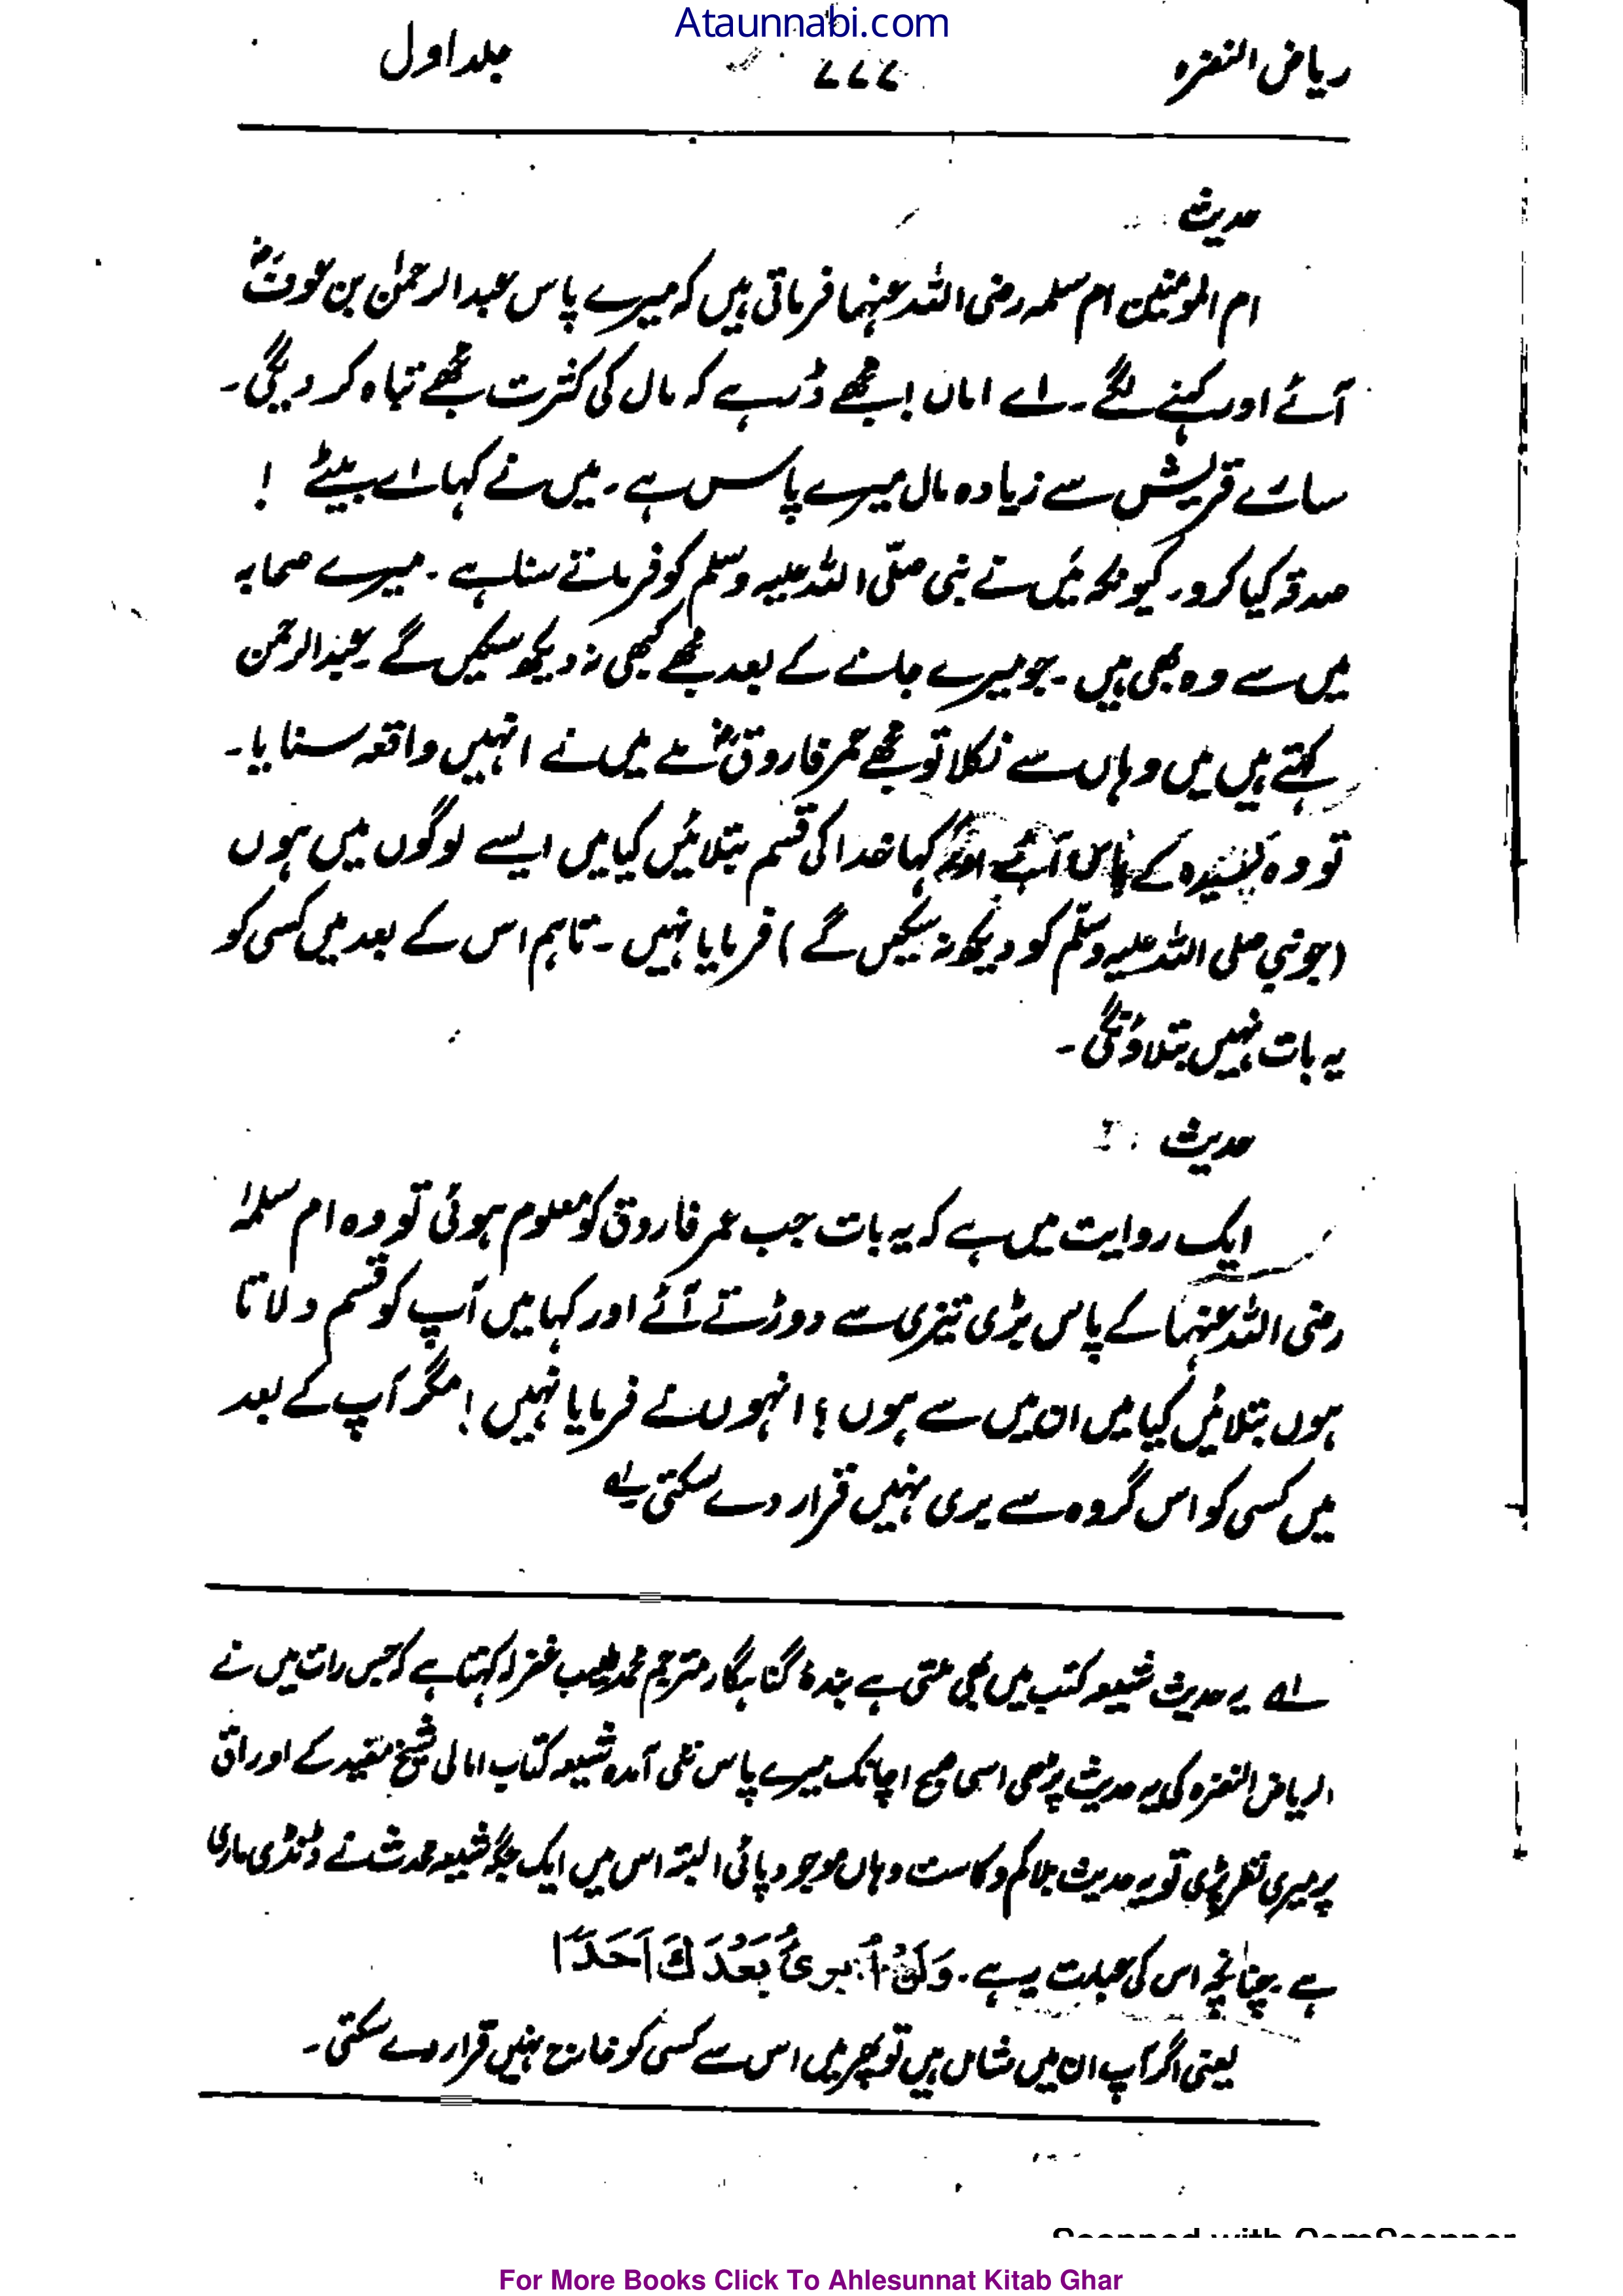 Ataunnabi.com
ریاض النضرہ ۷۷۷ جلد اول
حدیث
ام المومنین ام سلمہ رضی اللہ عنہا فرماتی ہیں کہ میرے پاس عبدالرحمٰن بن عوفؓ
آئے اور کہنے لگے۔ اے اماں! مجھے ڈر ہے کہ مال کی کثرت مجھے تباہ کر دیگی۔
سارے قریش سے زیادہ مال میرے پاس ہے۔ میں نے کہا اے بیٹے !
صدقہ کیا کرو۔ کیونکہ میں نے نبی صلّی اللہ علیہ وسلم کو فرماتے سنا ہے۔ میرے صحابہ
میں سے وہ بھی ہیں۔ جو میرے جانے کے بعد مجھے کبھی نہ دیکھ سکیں گے۔ عبدالرحمن
کہتے ہیں میں وہاں سے نکلا تو مجھے عمر فاروقؓ ملے میں نے انہیں واقعہ سنایا۔
تو وہ کے پاس آئے اور کہا خدا کی قسم بتلائیں کیا میں ایسے لوگوں میں ہوں
(جو نبی صلی اللہ علیہ وسلّم کو دیکھ نہ سکیں گے) فرمایا نہیں۔ تاہم اس کے بعد میں کسی کو
یہ بات نہیں بتلاؤنگی۔
حدیث :
ایک روایت میں ہے کہ یہ بات جب عمر فاروق کو معلوم ہوئی تو وہ ام سلمہ
رضی اللہ عنہا کے پاس بڑی تیزی سے دوڑتے آئے اور کہا میں آپ کو قسم دلاتا
ہوں بتلائیں کیا میں ان میں سے ہوں؟ انہوں نے فرمایا نہیں! مگر آپ کے بعد
میں کسی کو اس گروہ سے بری نہیں قرار دے سکتی۔ لہ
لہ یہ حدیث شیعہ کتب میں بھی ملتی ہے بندۂ گناہگار مترجم محمد طیب غفرلہ کہتا ہے کہ جس رات میں نے
الریاض النضرہ کی یہ حدیث پڑھی اسی صبح اچانک میرے پاس نئی آمدہ شیعہ کتاب امالی شیخ مفید کے اوراق
پر میری نظر پڑی تو یہ حدیث بلا کم و کاست وہاں موجود پائی البتہ اس میں ایک جگہ شیعہ محدث نے ڈنڈی ماری
ہے۔ چنانچہ اس کی عبارت یہ ہے۔ وَلَنْ اُبرِئَ بَعْدَكَ اَحَدًا
یعنی اگر آپ ان میں شامل ہیں تو پھر میں اس سے کسی کو خارج نہیں قرار دے سکتی۔
Scanned with CamScanner
For More Books Click To Ahlesunnat Kitab Ghar